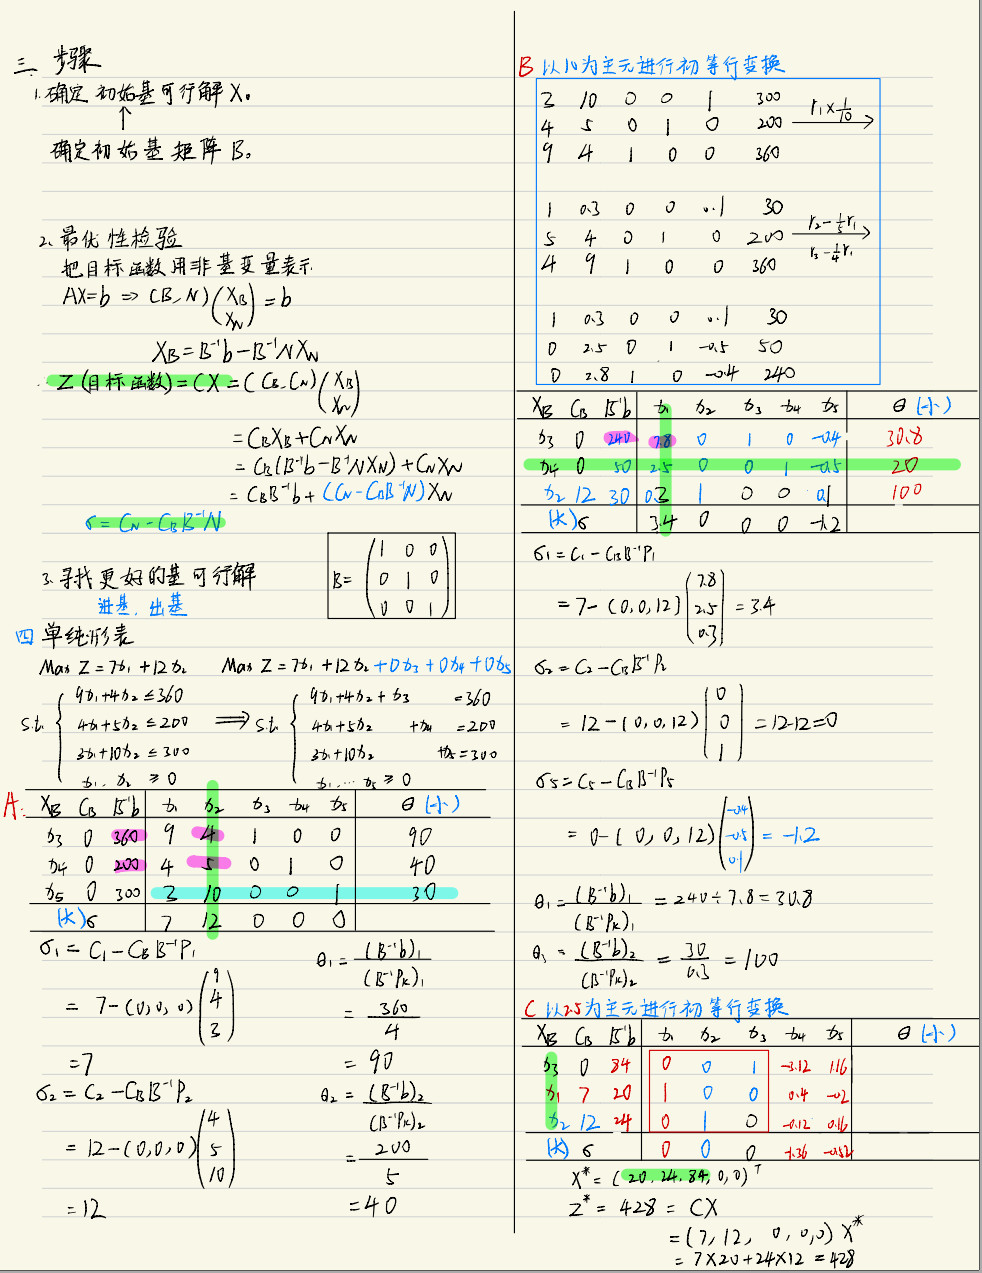 三. 步骤
1.确定 初始基可行解 X₀
↑
确定初始基矩阵 B₀
2. 最优性检验
把目标函数用非基变量表示
AX=b => (B,N)(X_B X_N)=b
X_B=B⁻¹b-B⁻¹NX_N
Z(目标函数)=CX=(C_B,C_N)(X_B X_N)
=C_BX_B+C_NX_N
=C_B(B⁻¹b-B⁻¹NX_N)+C_NX_N
=C_BB⁻¹b+(C_N-C_BB⁻¹N)X_N
σ=C_N-C_BB⁻¹N
3.寻找更好的基可行解
进基, 出基
B=
1 0 0
0 1 0
0 0 1
四 单纯形表
Max Z=7x₁+12x₂
s.t.
9x₁+4x₂≤360
4x₁+5x₂≤200
3x₁+10x₂≤300
x₁, x₂≥0
=>
Max Z=7x₁+12x₂+0x₃+0x₄+0x₅
s.t.
9x₁+4x₂+x₃ =360
4x₁+5x₂ +x₄ =200
3x₁+10x₂ +x₅=300
x₁...x₅≥0
A.
X_B C_B B⁻¹b x₁ x₂ x₃ x₄ x₅ θ(小)
x₃ 0 360 9 4 1 0 0 90
x₄ 0 200 4 5 0 1 0 40
x₅ 0 300 3 10 0 0 1 30
(大)σ 7 12 0 0 0
σ₁=C₁-C_BB⁻¹P₁
=7-(0,0,0)(9 4 3)
=7
σ₂=C₂-C_BB⁻¹P₂
=12-(0,0,0)(4 5 10)
=12
θ₁=(B⁻¹b)₁/(B⁻¹P_K)₁
=360/4
=90
θ₂=(B⁻¹b)₂/(B⁻¹P_K)₂
=200/5
=40
B 以10为主元进行初等行变换
3 10 0 0 1 300 r₁×1/10
4 5 0 1 0 200
9 4 1 0 0 360
1 0.3 0 0 0.1 30
5 4 0 1 0 200 r₂-1/5r₁
4 9 1 0 0 360 r₃-1/4r₁
1 0.3 0 0 0.1 30
0 2.5 0 1 -0.5 50
0 2.8 1 0 -0.4 240
X_B C_B B⁻¹b x₁ x₂ x₃ x₄ x₅ θ(小)
x₃ 0 240 7.8 0 1 0 -0.4 30.8
x₄ 0 50 2.5 0 0 1 -0.5 20
x₂ 12 30 0.3 1 0 0 0.1 100
(大)σ 3.4 0 0 0 -1.2
σ₁=C₁-C_BB⁻¹P₁
=7-(0,0,12)(7.8 2.5 0.3)=3.4
σ₂=C₂-C_BB⁻¹P₂
=12-(0,0,12)(0 0 1)=12-12=0
σ₅=C₅-C_BB⁻¹P₅
=0-(0,0,12)(-0.4 -0.5 0.1)=-1.2
θ₁=(B⁻¹b)₁/(B⁻¹P_K)₁=240÷7.8=30.8
θ₃=(B⁻¹b)₂/(B⁻¹P_K)₂=30/0.3=100
C 以2.5为主元进行初等行变换
X_B C_B B⁻¹b x₁ x₂ x₃ x₄ x₅ θ(小)
x₃ 0 84 0 0 1 -3.12 1.16
x₁ 7 20 1 0 0 0.4 -0.2
x₂ 12 24 0 1 0 -0.12 0.16
(大)σ 0 0 0 -1.36 -0.52
X*=(20,24,84,0,0)ᵀ
Z*=428=CX
=(7,12, 0,0,0)X*
=7×20+24×12=428